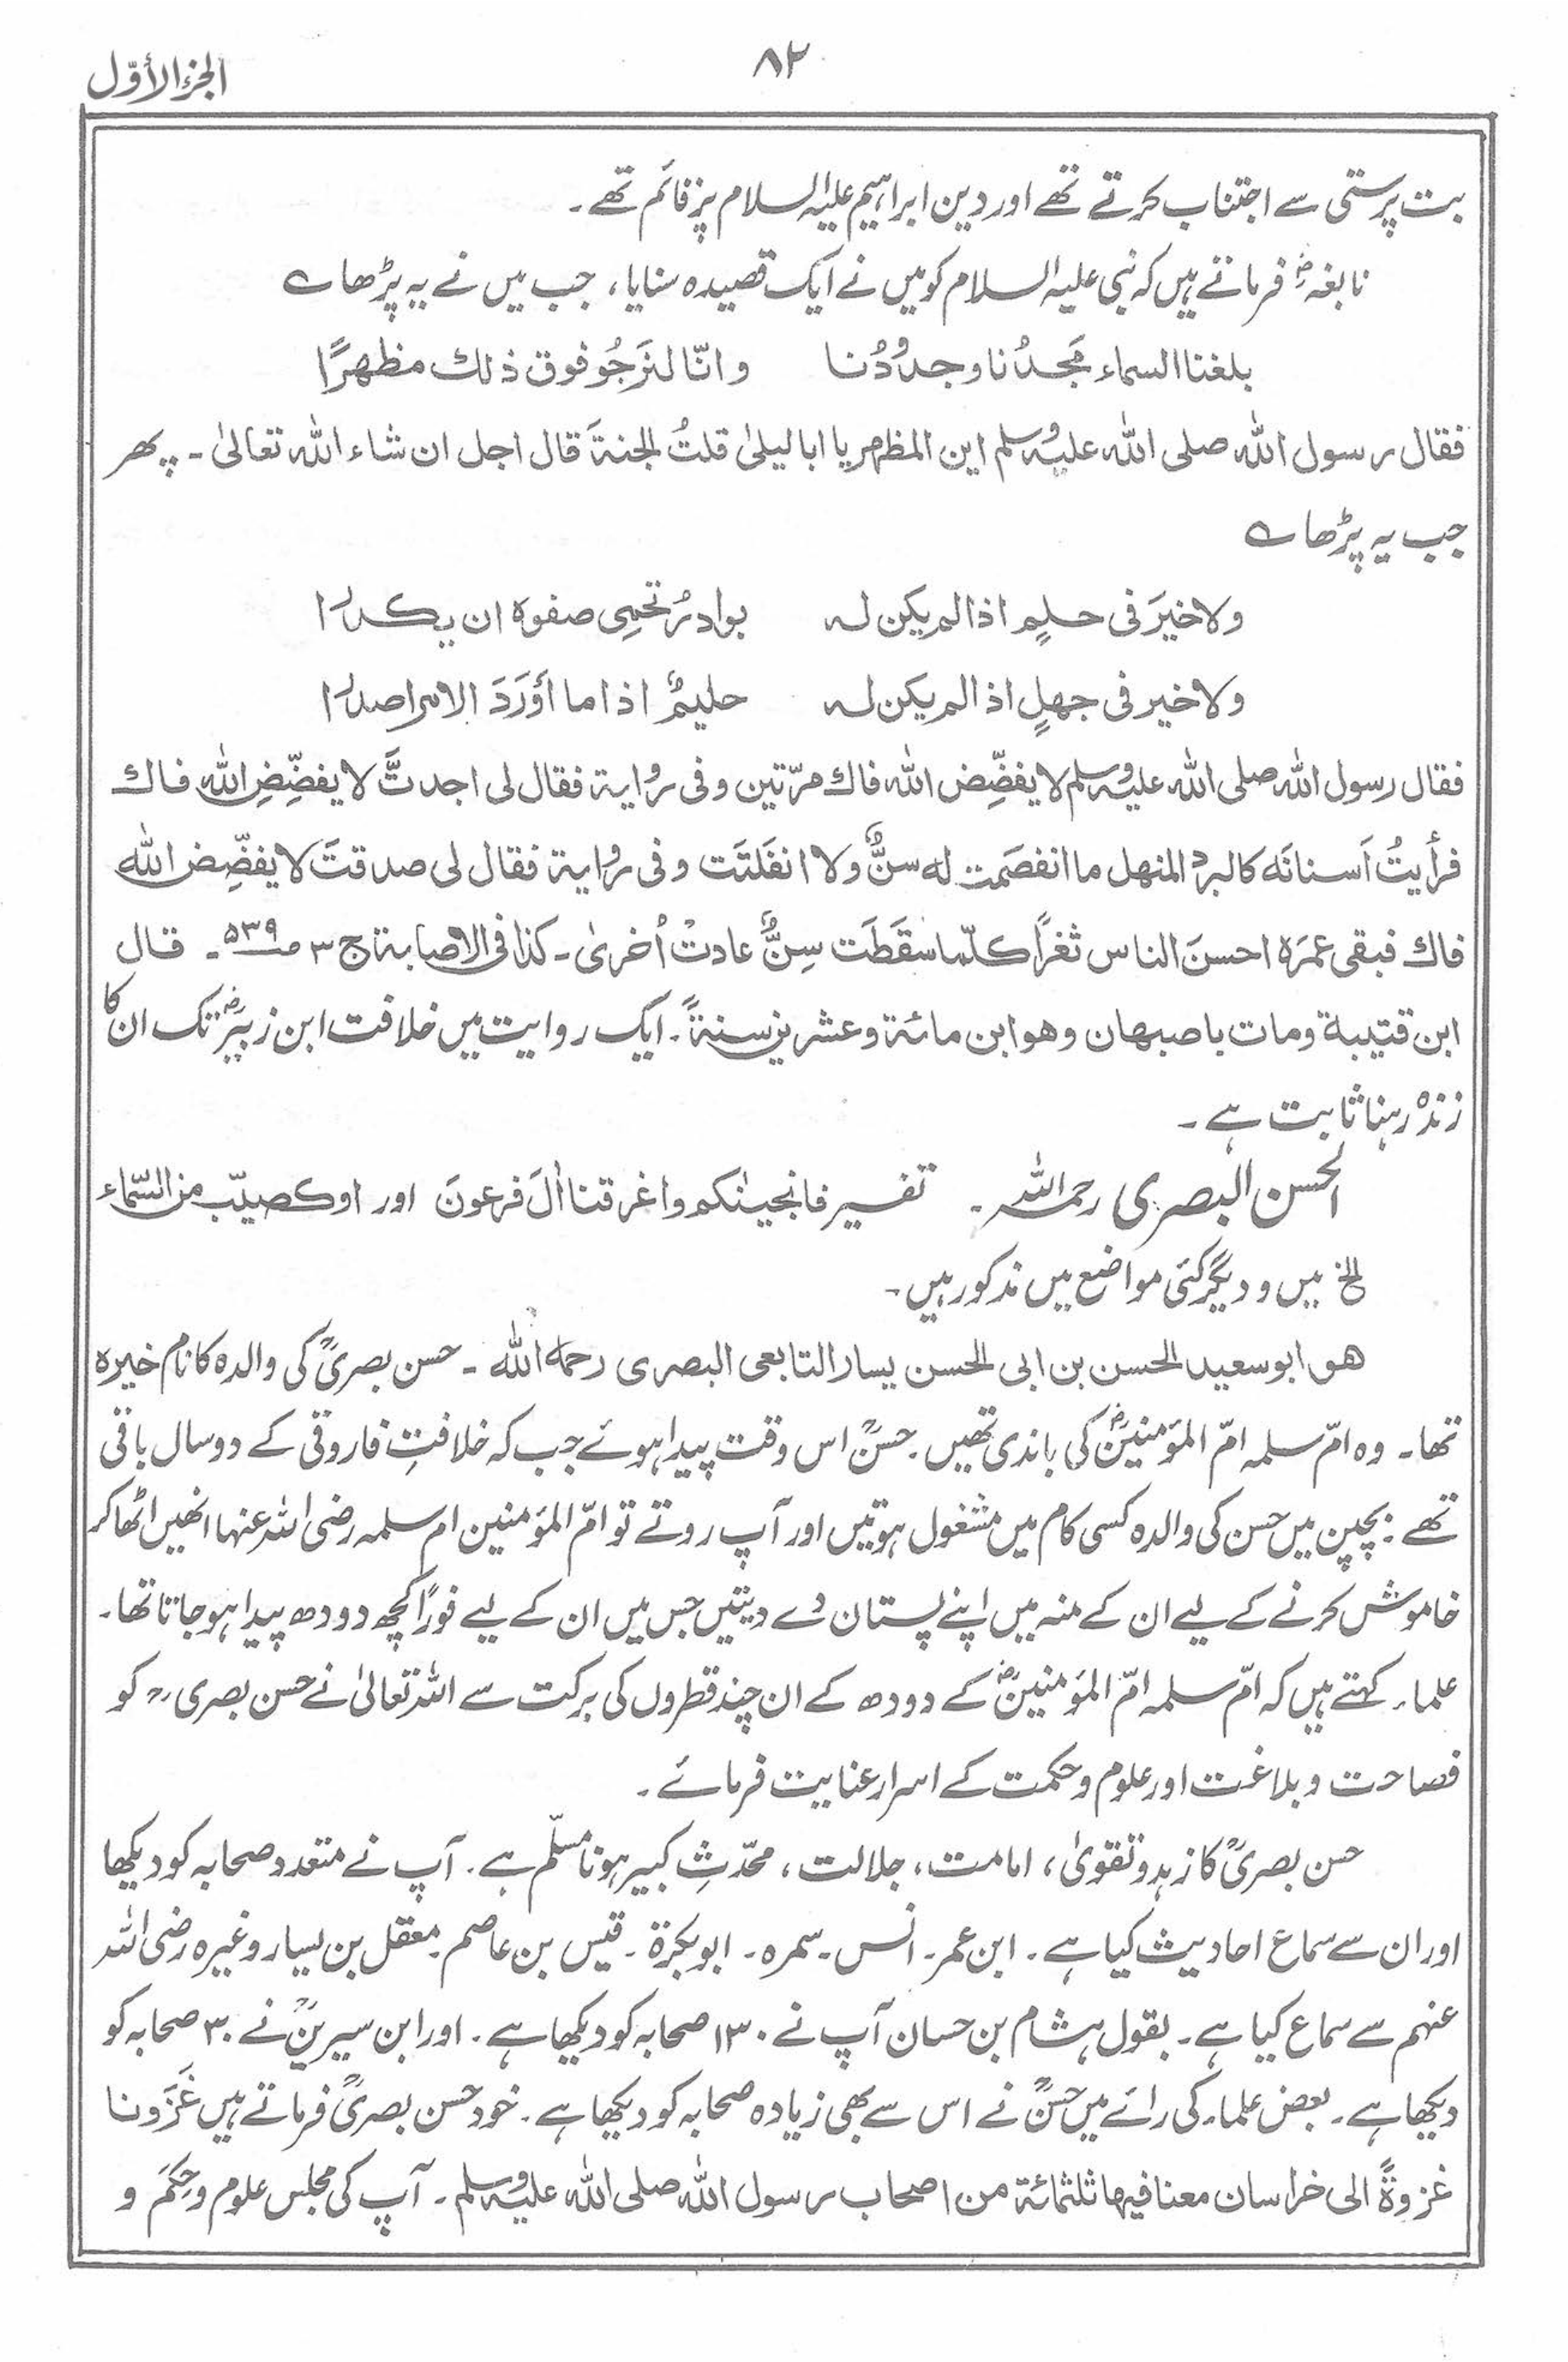 الجزء الأوّل
۸۲
بت پرستی سے اجتناب کرتے تھے اور دین ابراہیم علیہ السلام پر قائم تھے۔
نابغہؓ فرماتے ہیں کہ نبی علیہ السلام کو میں نے ایک قصیدہ سنایا، جب میں نے یہ پڑھا ؎
بلغنا السماء مَجدُنا وجدُودُنا وانّا لنَرجُو فوق ذلك مظهرًا
فقال رسول الله صلى الله عليه وسلم اين المظهر يا ابا ليلىٰ قلتُ الجنةَ قال اجل ان شاء الله تعالىٰ ۔ پھر
جب یہ پڑھا ؎
ولا خيرَ فى حلمٍ اذا لم يكن له بوادرُ تحمِى صفوه ان يكدرا
ولا خير فى جهلٍ اذا لم يكن له حليمٌ اذا ما أَورَدَ الامر اصدرا
فقال رسول الله صلى الله عليه وسلم لا يفضِّض الله فاك مرّتين وفى رواية فقال لى اجدتَّ لا يفضِّضِ الله فاك
فرأيتُ اَسنانَه كالبرد المنهل ما انفصَمت له سنٌّ ولا انفَلتَت وفى رواية فقال لى صدقتَ لا يفضِّض الله
فاك فبقى عمرَه احسنَ الناس ثغرًا كلّما سقَطَت سِنٌّ عادتْ اُخرىٰ ۔ كذا فى الاصابة ج ۳ صـ ۵۳۹ ۔ قال
ابن قتيبة ومات باصبهان وهو ابن مائة وعشرين سنةً ۔ ایک روایت میں خلافت ابن زبیرؓ تک ان کا
زندہ رہنا ثابت ہے ۔
الحسن البصری رحمہ اللہ ۔ تفسیر فانجينٰكم واغرقنا اٰلَ فرعونَ اور اوكصيّب من السّماء
الخ میں و دیگر کئی مواضع میں مذکور ہیں ۔
هو ابو سعيد الحسن بن ابى الحسن يسار التابعى البصرى رحمه الله ۔ حسن بصریؒ کی والدہ کا نام خیرہ
تھا ۔ وہ امّ سلمہ امّ المؤمنینؓ کی باندی تھیں ۔ حسنؒ اس وقت پیدا ہوئے جب کہ خلافتِ فاروقی کے دو سال باقی
تھے ۔ بچپن میں حسن کی والدہ کسی کام میں مشغول ہوتیں اور آپ روتے تو امّ المؤمنین ام سلمہ رضی اللہ عنہا انھیں اٹھا کر
خاموش کرنے کے لیے ان کے منہ میں اپنے پستان دے دیتیں جس میں ان کے لیے فورًا کچھ دودھ پیدا ہو جاتا تھا ۔
علماء کہتے ہیں کہ امّ سلمہ امّ المؤمنینؓ کے دودھ کے ان چند قطروں کی برکت سے اللہ تعالیٰ نے حسن بصریؒ کو
فصاحت و بلاغت اور علوم و حکمت کے اسرار عنایت فرمائے ۔
حسن بصریؒ کا زہد و تقویٰ، امامت، جلالت، محدّثِ کبیر ہونا مسلّم ہے ۔ آپ نے متعدد صحابہ کو دیکھا
اور ان سے سماع احادیث کیا ہے ۔ ابن عمر ۔ انس ۔ سمرہ ۔ ابوبکرۃ ۔ قیس بن عاصم ۔ معقل بن یسار وغیرہ رضی اللہ
عنہم سے سماع کیا ہے ۔ بقول ہشام بن حسان آپ نے ۱۳۰ صحابہ کو دیکھا ہے ۔ اور ابن سیرینؒ نے ۳۰ صحابہ کو
دیکھا ہے ۔ بعض علماء کی رائے میں حسنؒ نے اس سے بھی زیادہ صحابہ کو دیکھا ہے ۔ خود حسن بصریؒ فرماتے ہیں غَزَونا
غزوةً الى خراسان معنا فيها ثلثمائة من اصحاب رسول الله صلى الله عليه وسلم ۔ آپ کی مجلس علوم و حِکَم و